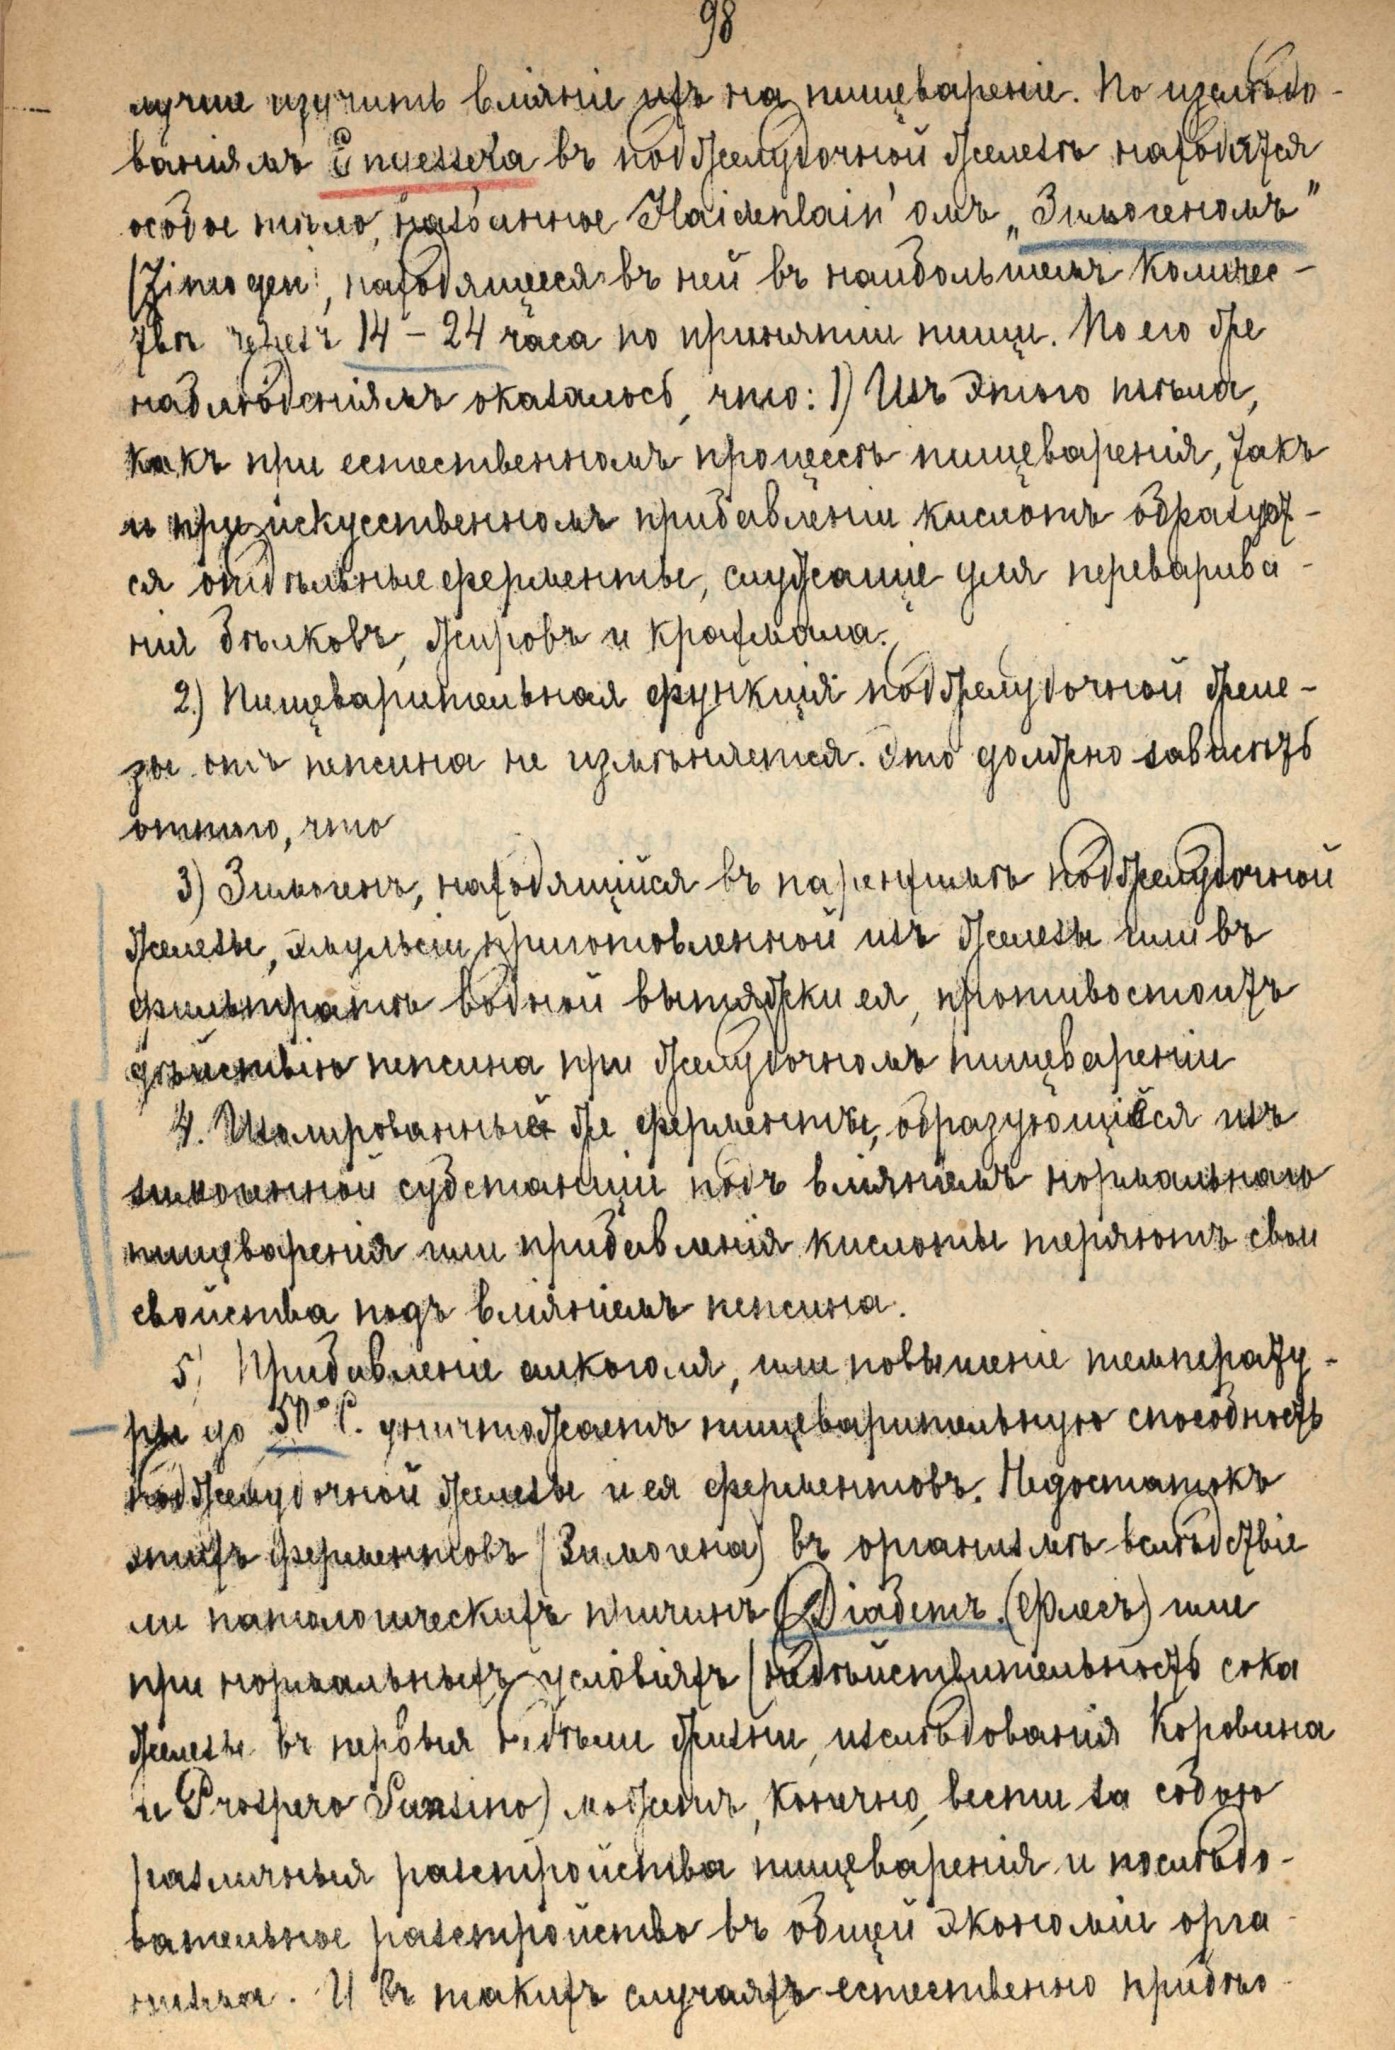 98
лучше изучить вліяніе ихъ на пищевареніе. По изслѣдо-
ваніямъ Engesser'a въ поджелудочной железѣ находятся
особое тѣло, названное Haidenlain'омъ „Зимогеномъ"
(Zimogen), находящееся въ ней въ наибольшемъ количес-
твѣ черезъ 14 – 24 часа по принятіи пищи. По его же
наблюденіямъ оказалось, что: 1) Изъ этого тѣла,
какъ при естественномъ процессѣ пищеваренія, такъ
и при искусственномъ прибавленіи кислотъ образуют-
ся отдѣльные ферменты, служащіе для перевариванія-
нія бѣлковъ, жировъ и крахмала.
2.) Пищеварительная функція поджелудочной желе-
зы отъ пепсина не измѣняется. Это должно зависѣть
оттого, что
3) Зимогенъ, находящійся въ паренхимѣ поджелудочной
железы, эмульсіи приготовленной изъ железы или въ
фильтратѣ водной вытяжки ея, противостоитъ
дѣйствію пепсина при желудочномъ пищевареніи
4. Изолированные же ферменты, образующіеся изъ
зимогенной субстанціи подъ вліяніемъ нормальнаго
пищеваренія или прибавленія кислоты теряютъ свои
свойства подъ вліяніемъ пепсина.
5) Прибавленіе алкоголя, или повышеніе температу-
ры до 50° С. уничтожаетъ пищеварительную способность
поджелудочной железы и ея ферментовъ. Недостатокъ
этихъ ферментовъ (Зимогена) въ организмѣ вслѣдствіе
ли патологическихъ причинъ (Діабетъ. (Флесъ) или
при нормальныхъ условіяхъ (недѣйствительность сока
железы въ первыя недѣли жизни, изслѣдованія Коровина
и Prospero Sunsino) можетъ, конечно, вести за собою
различныя разстройства пищеваренія и послѣдо-
вательное разстройство въ общей экономіи орга-
низма. И въ такихъ случаяхъ естественно прибѣ-